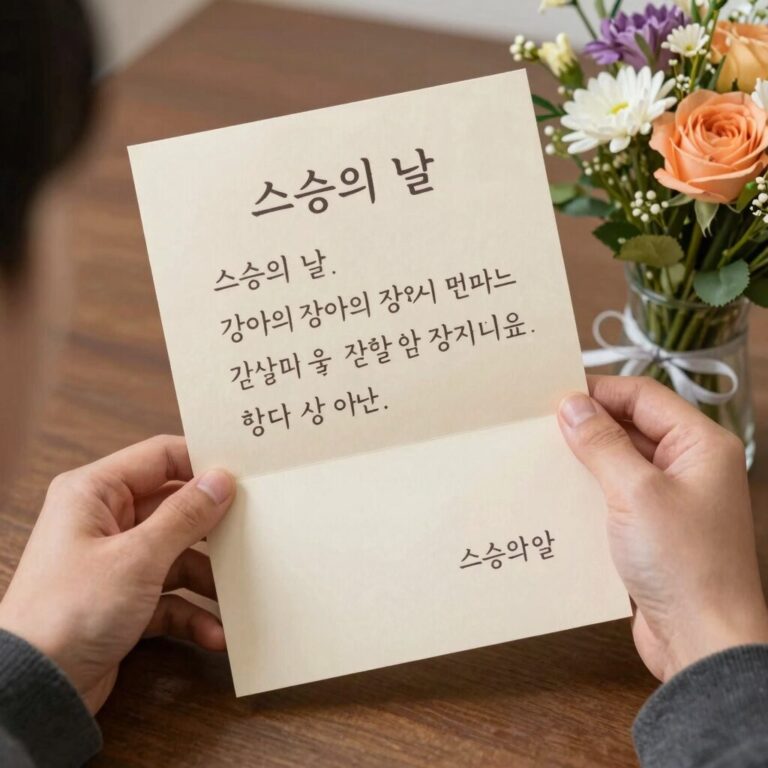 스승의 날
스승의 날.
강아의 장아의 먼파느
갇살미 울 잗할 암 장지니요.
항다 상 아난.
스승악알